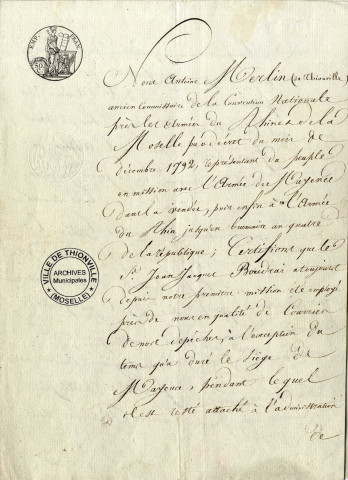 EMP. FRAN.
Nous Antoine Merlin (de Thionville)
ancien Commissaire de la Convention Nationale
près les Armées du Rhin et de la
Moselle par décret du mois de
décembre 1792, représentant du peuple
en mission avec l'Armée de Mayence
dans la vendée, puis enfin à l'Armée
du Rhin jusqu'en brumaire an quatre
de la République; Certifions que le
Sr. Jean Jacques a toujours
depuis notre première mission été employé
près de nous en qualité de Courrier
de nos dépêches, à l'exception du
tems qu'a duré le siége de
Mayence, pendant lequel
il est resté attaché à l'administration
de
VILLE DE THIONVILLE
ARCHIVES
Municipales
(MOSELLE)